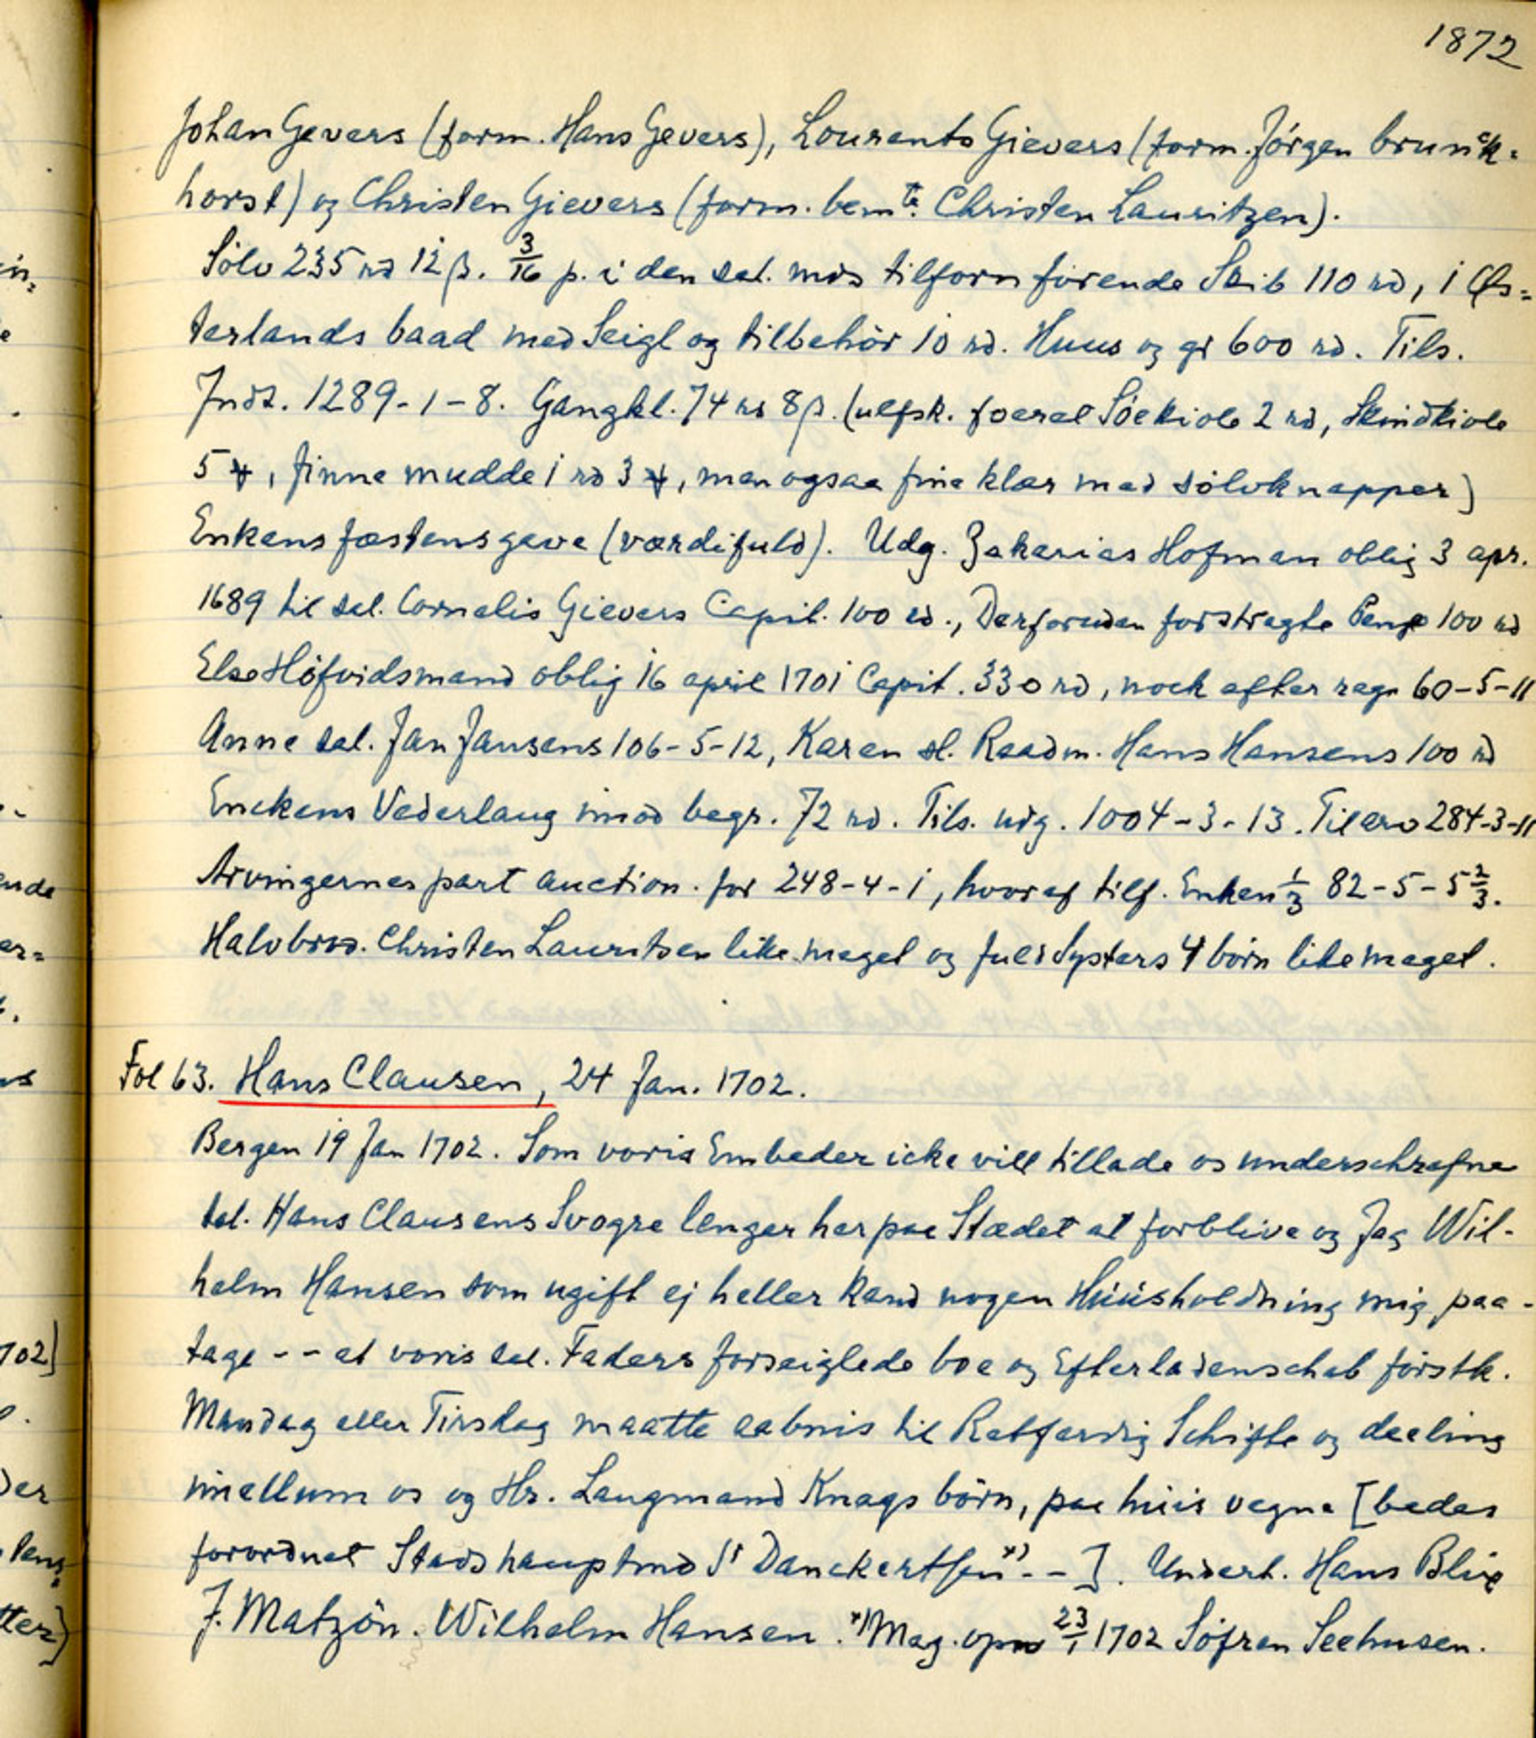 1872
Johan Gevers (form. Hans Gevers), Lourents Gievers (form. Jörgen brunck-
horst) og Christen Gievers (form. bemte. Christen Lauritzen).
Sölv 235 rd 12 β. 3/16 p. i den sal. mds tilforn förende Skib 110 rd, i Øs=
terlands baad med Seigl og tilbehör 10 rd. Huus og gr 600 rd. Tils.
Indt. 1289-1-8. Gangkl. 74 rd 8 β. (ulfsk. foeret Söekiole 2 rd, Skindkiole
5 , finne mudde 1 rd 3 , men ogsaa fine klær med sölvknapper)
Enkens fæstensgave (værdifuld). Udg. Zakarias Hofman oblig 3 apr.
1689 til sal. Cornelis Gievers Capit. 100 rd., Derforuden forstragte Penge 100 rd
Else Höfvidsmand oblig 16 april 1701 Capit. 330 rd, nock efter regn 60-5-11
Anne sal. Jan Jansens 106-5-12, Karen sl. Raadm. Hans Hansens 100 rd
Enckens Vederlaug imod begr. 72 rd. Tils. udg. 1004-3-13. Til arv 284-3-11
Arvingernes part auction. for 248-4-1, hvoraf tilf. Enken 1/3 82-5-5 2/3.
Halvbrod. Christen Lauritsen like meget og fuld Systers 4 börn like meget.
Fol 63. Hans Clausen, 24 Jan. 1702.
Bergen 19 Jan 1702. Som voris Embeder icke vill tillade os underschrefne
sal. Hans Clausens Svogre lenger her paa Stædet at forblive og Jeg Wil-
helm Hansen som ugift ej heller kand nogen Huusholdning mig paa-
tage -- at voris sal. Faders forseiglede boe og Efterladenschab förstk.
Mandag eller Tirsdag maatte aabnis til Retfærdig Schifte og deeling
imellum os og Hr. Laugmand Knags börn, paa hvis vegne [bedes
forordnet Stadshauptmd Sr Danckertsen x) --]. Underd. Hans Blix
J. Matzön. Wilhelm Hansen. x) Mag. opn 23/1 1702 Söfren Seehusen.